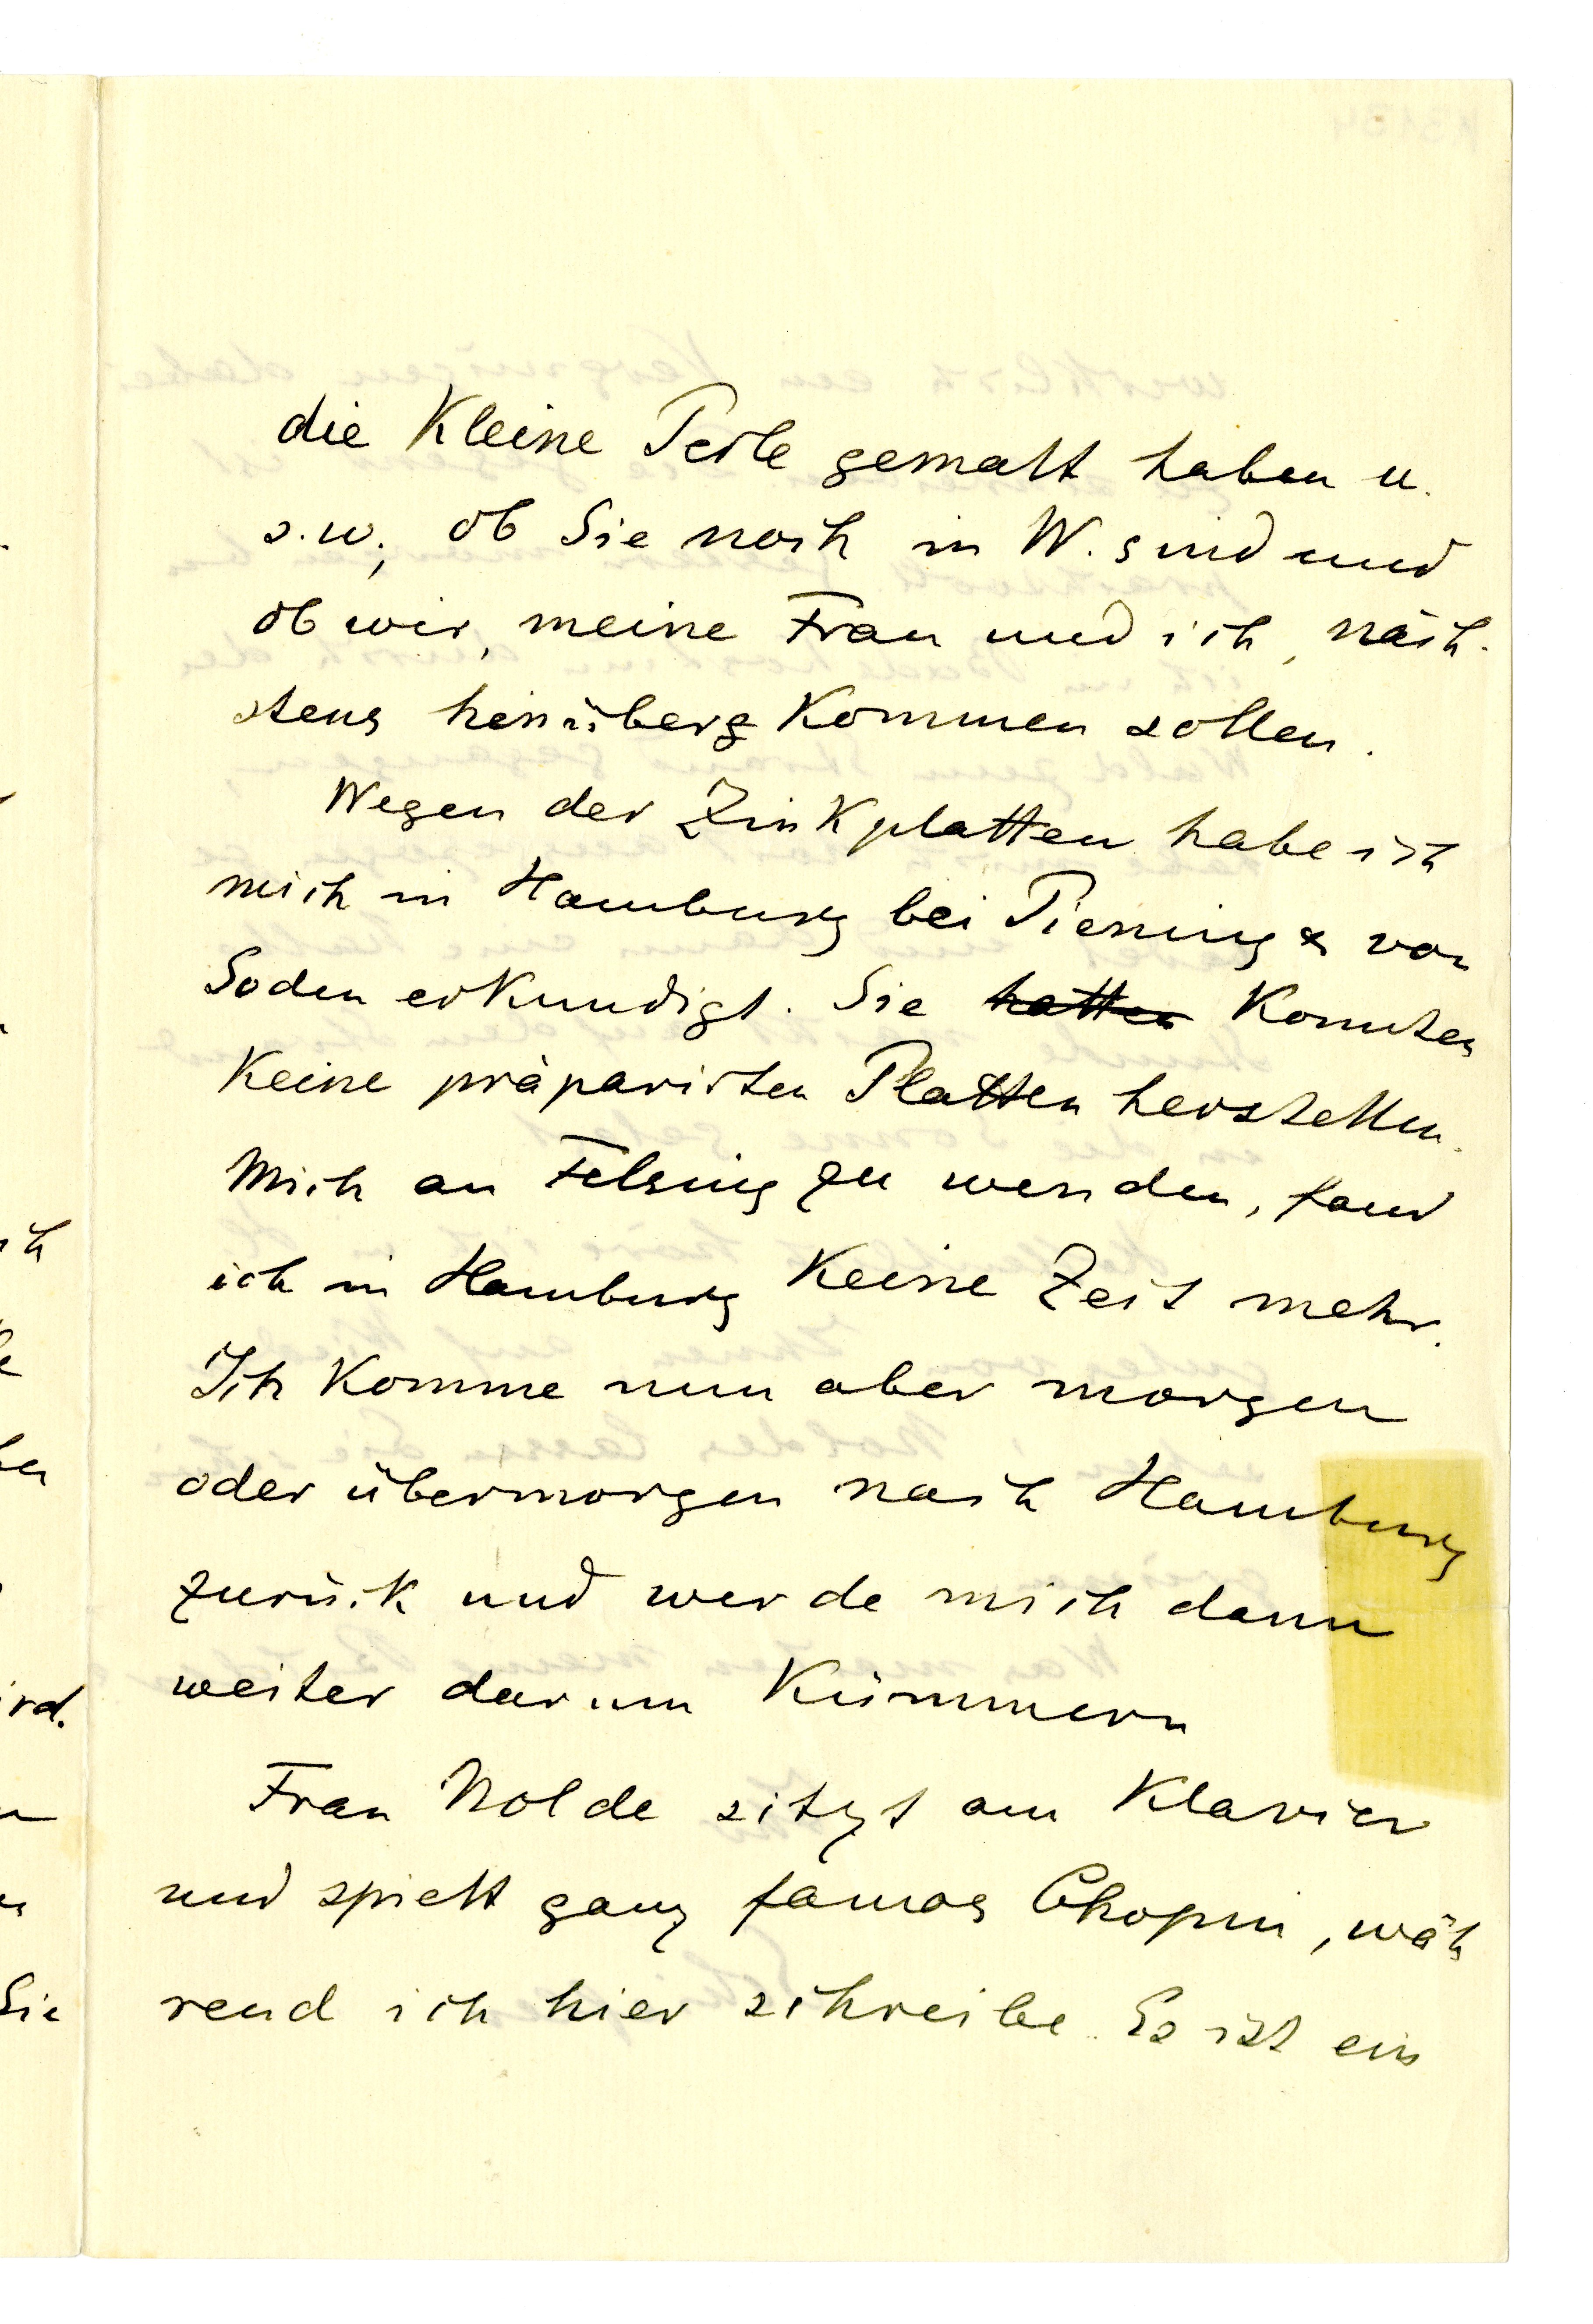 die Kleine Perle gemalt haben u.
s.w., ob Sie noch in W. sind und
ob wir, meine Frau und ich, näch-
stens hinüberg kommen sollen.
Wegen der Zinkplatten habe ich
mich in Hamburg bei Piening & von
Soden erkundigt. Sie hatten konnten
keine präparirten Platten herstellen.
Mich an Felsing zu wenden, fand
ich in Hamburg keine Zeit mehr.
Ich komme nun aber morgen
oder übermorgen nach Hamburg
zurück und werde mich dann
weiter darum kümmern
Frau Nolde sitzt am Klavier
und spielt ganz famos Chopin, wäh
rend ich hier schreibe. Es ist ein